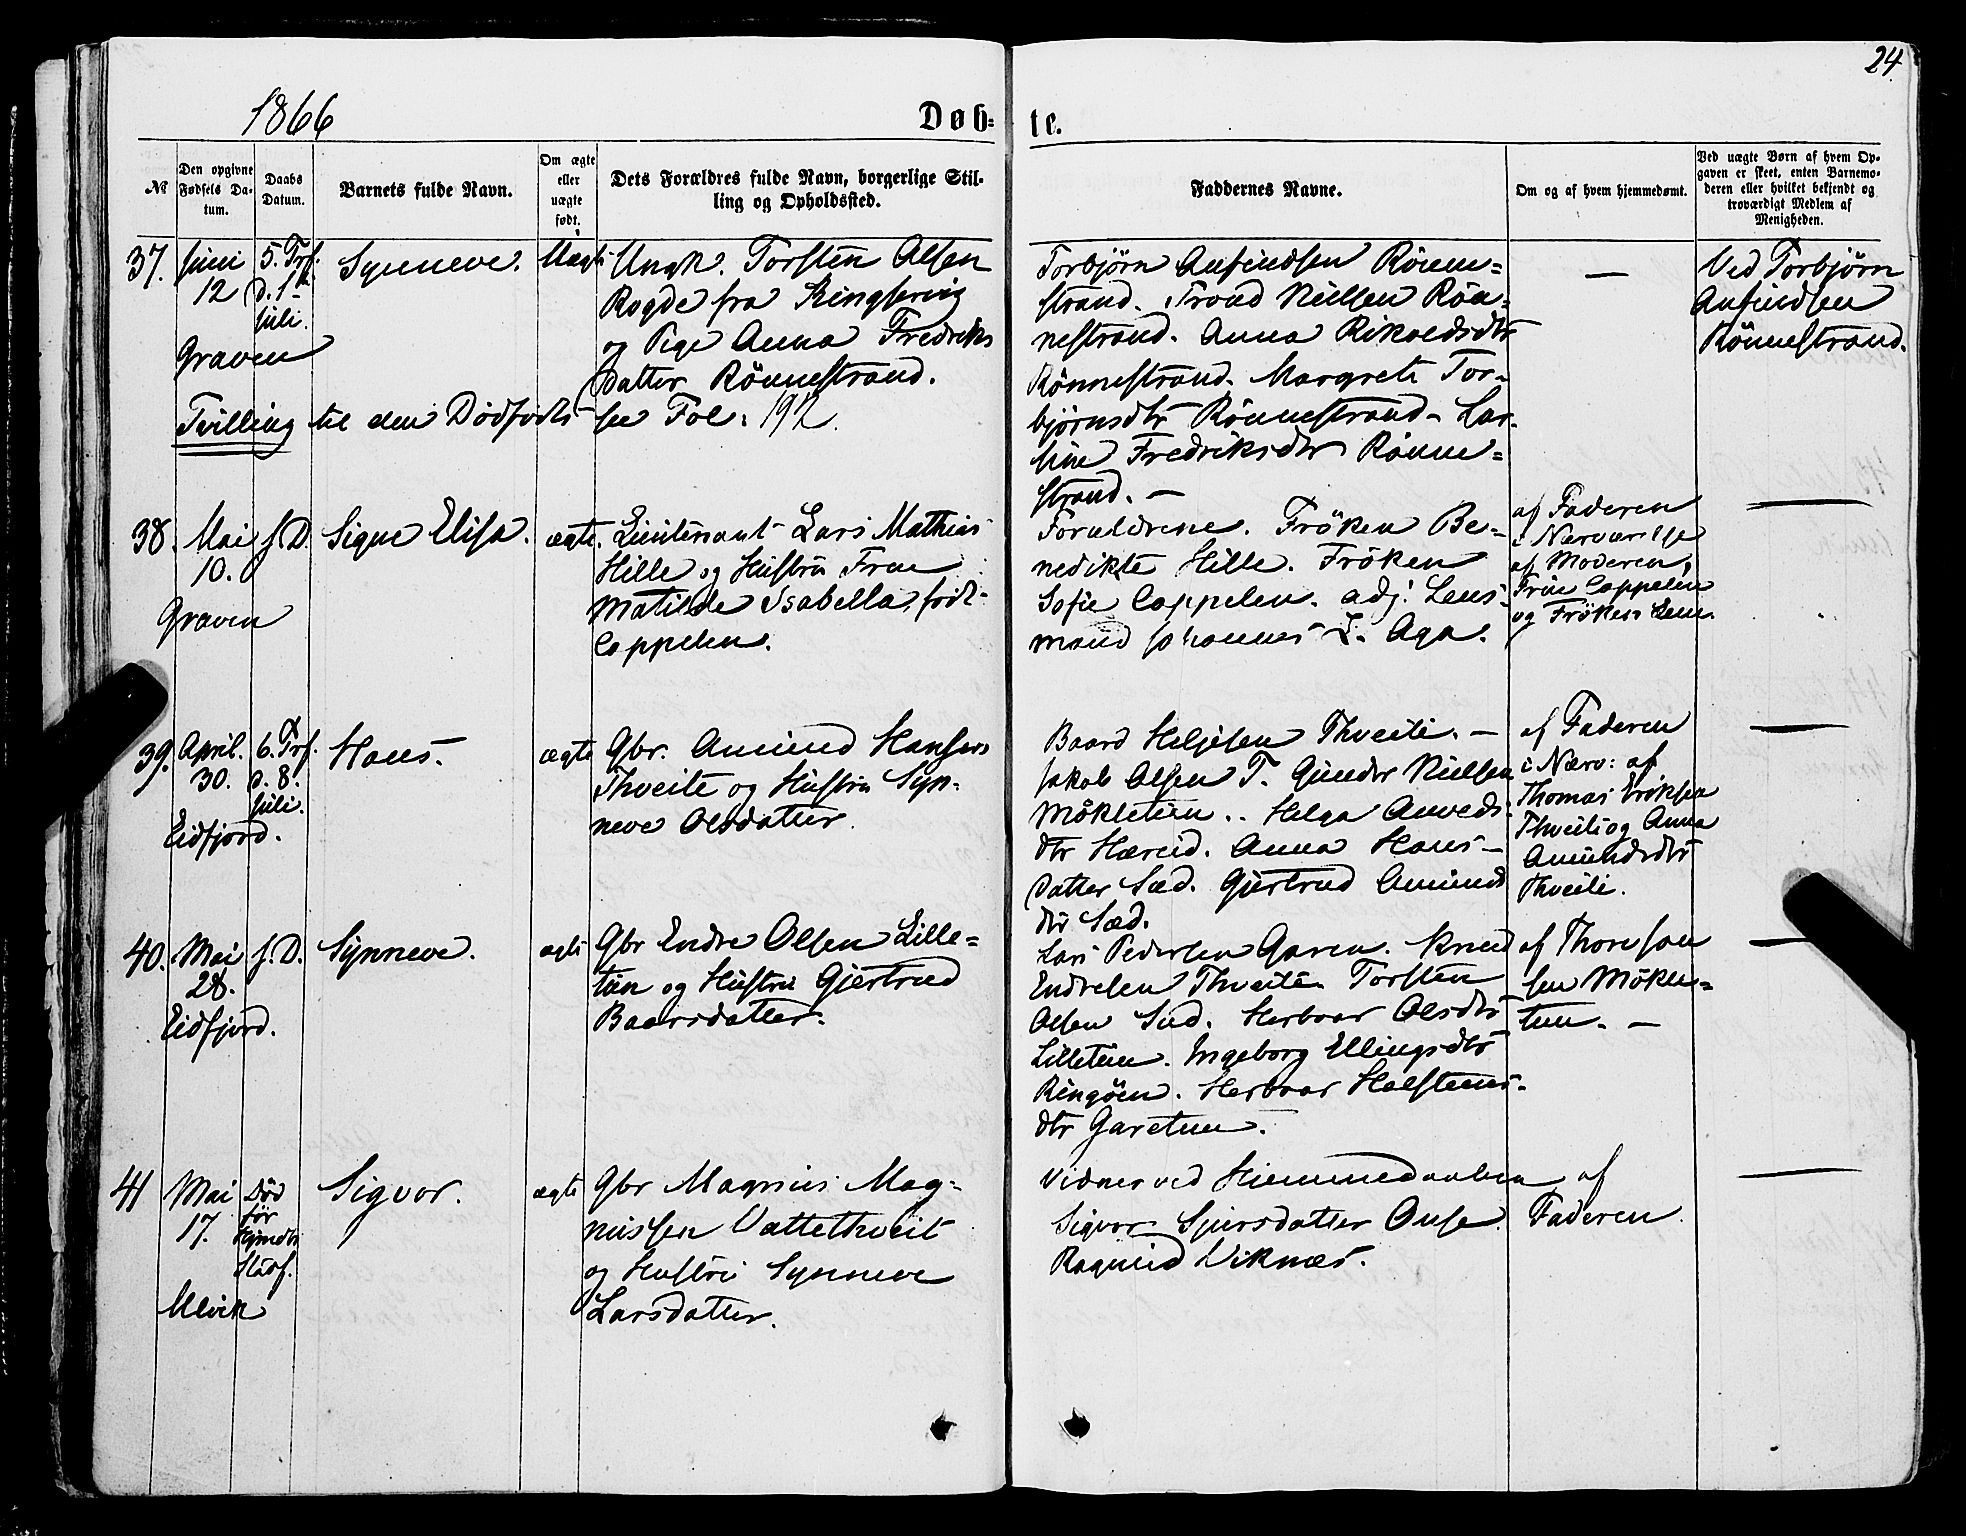 24
1866
Døb-
te.
№
Den opgivne
Fødsels Da-
tum.
Daabs
Datum.
Barnets fulde Navn.
Om ægte
eller
uægte
født.
Dets Forældres fulde Navn, borgerlige Stil-
ling og Opholdssted.
Faddernes Navne.
Om og af hvem hjemmedømt.
Ved uægte Børn af hvem Op-
gaven er skeet, enten Barnemo-
deren eller hvilket bekjendt og
troværdigt Medlem af
Menigheden.
37.
Juni
12
Graven
5. Trf.
d. 1ste
Juli.
Synneve.
Uægte
Ungk. Torsten Olsen
Rogde fra Kingservig
og Pige Anna Fredriks
datter Rönnestrand.
Tvilling til den Dödfödte se Fol. 192.
Torbjörn Anfindsen Rönne-
strand. Trond Nielsen Rön-
nestrand. Anna Rikoldsdtr
Rönnestrand. Margrete Tor-
björnsdtr Rönnestrand. Lar-
sine Fredriksdtr Rönne-
strand. —
—
Ved Torbjörn
Anfindsen
Rönnestrand.
38.
Mai
10.
Graven
s. D.
Signe Elisa.
ægte.
Lieutenant Lars Mathias
Hille og Hustru Frue
Matilde Isabella, född
Cappelen.
Foruldrene. Fröken Be-
nedikte Hille. Fröken
Sofie Cappelen. adj. Lens-
mand Johannes L. Aga.
af Faderen
i Nærværelse
af Moderen,
Frue Cappelen
og Fröken Lem.
—
39.
April.
30.
Eidfjord.
6. Trf.
d. 8.
Juli.
Hans.
ægte
Gbr. Amund Hansen
Thveite og Hustru Syn-
neve Olsdatter.
Baard Heljesen Thveite. —
Jakob Olsen T. Gunder Nielsen
Mökletun. Helga Anveds-
dtr Hæreid. Anna Hans-
datter Sæd. Gjertrud Amunds
dtr Sæd.
af Faderen
i Nærv: af
Thomas Eriksen
Thveite og Anna
Amundsdtr
Thveite.
—
40.
Mai
28.
Eidfjord.
s. D.
Synneve.
ægte
Gbr Endre Olsen Lille-
tun og Hustru Gjertrud
Baarsdatter.
Lars Pedersen Garen. Knud
Endresen Thveite. Torsten
Olsen Sæd. Herbror Olsdtr
Lilletun. Ingeborg Ellingsdtr
Ringöen. Herbror Halstens-
dtr Garetun.
af Thore
sen Mökle-
tun. —
—
41
Mai
17.
Ulvik
Död
för
Sigvor.
ægte
Gbr Magnus Mag-
nussen Vattethveit
og Hustru Synneve
Larsdatter.
Vidner ved Hiemmedaaben
Sigvor Sjursdatter Onse
Ragnild Viknæs.
af
Faderen.
—